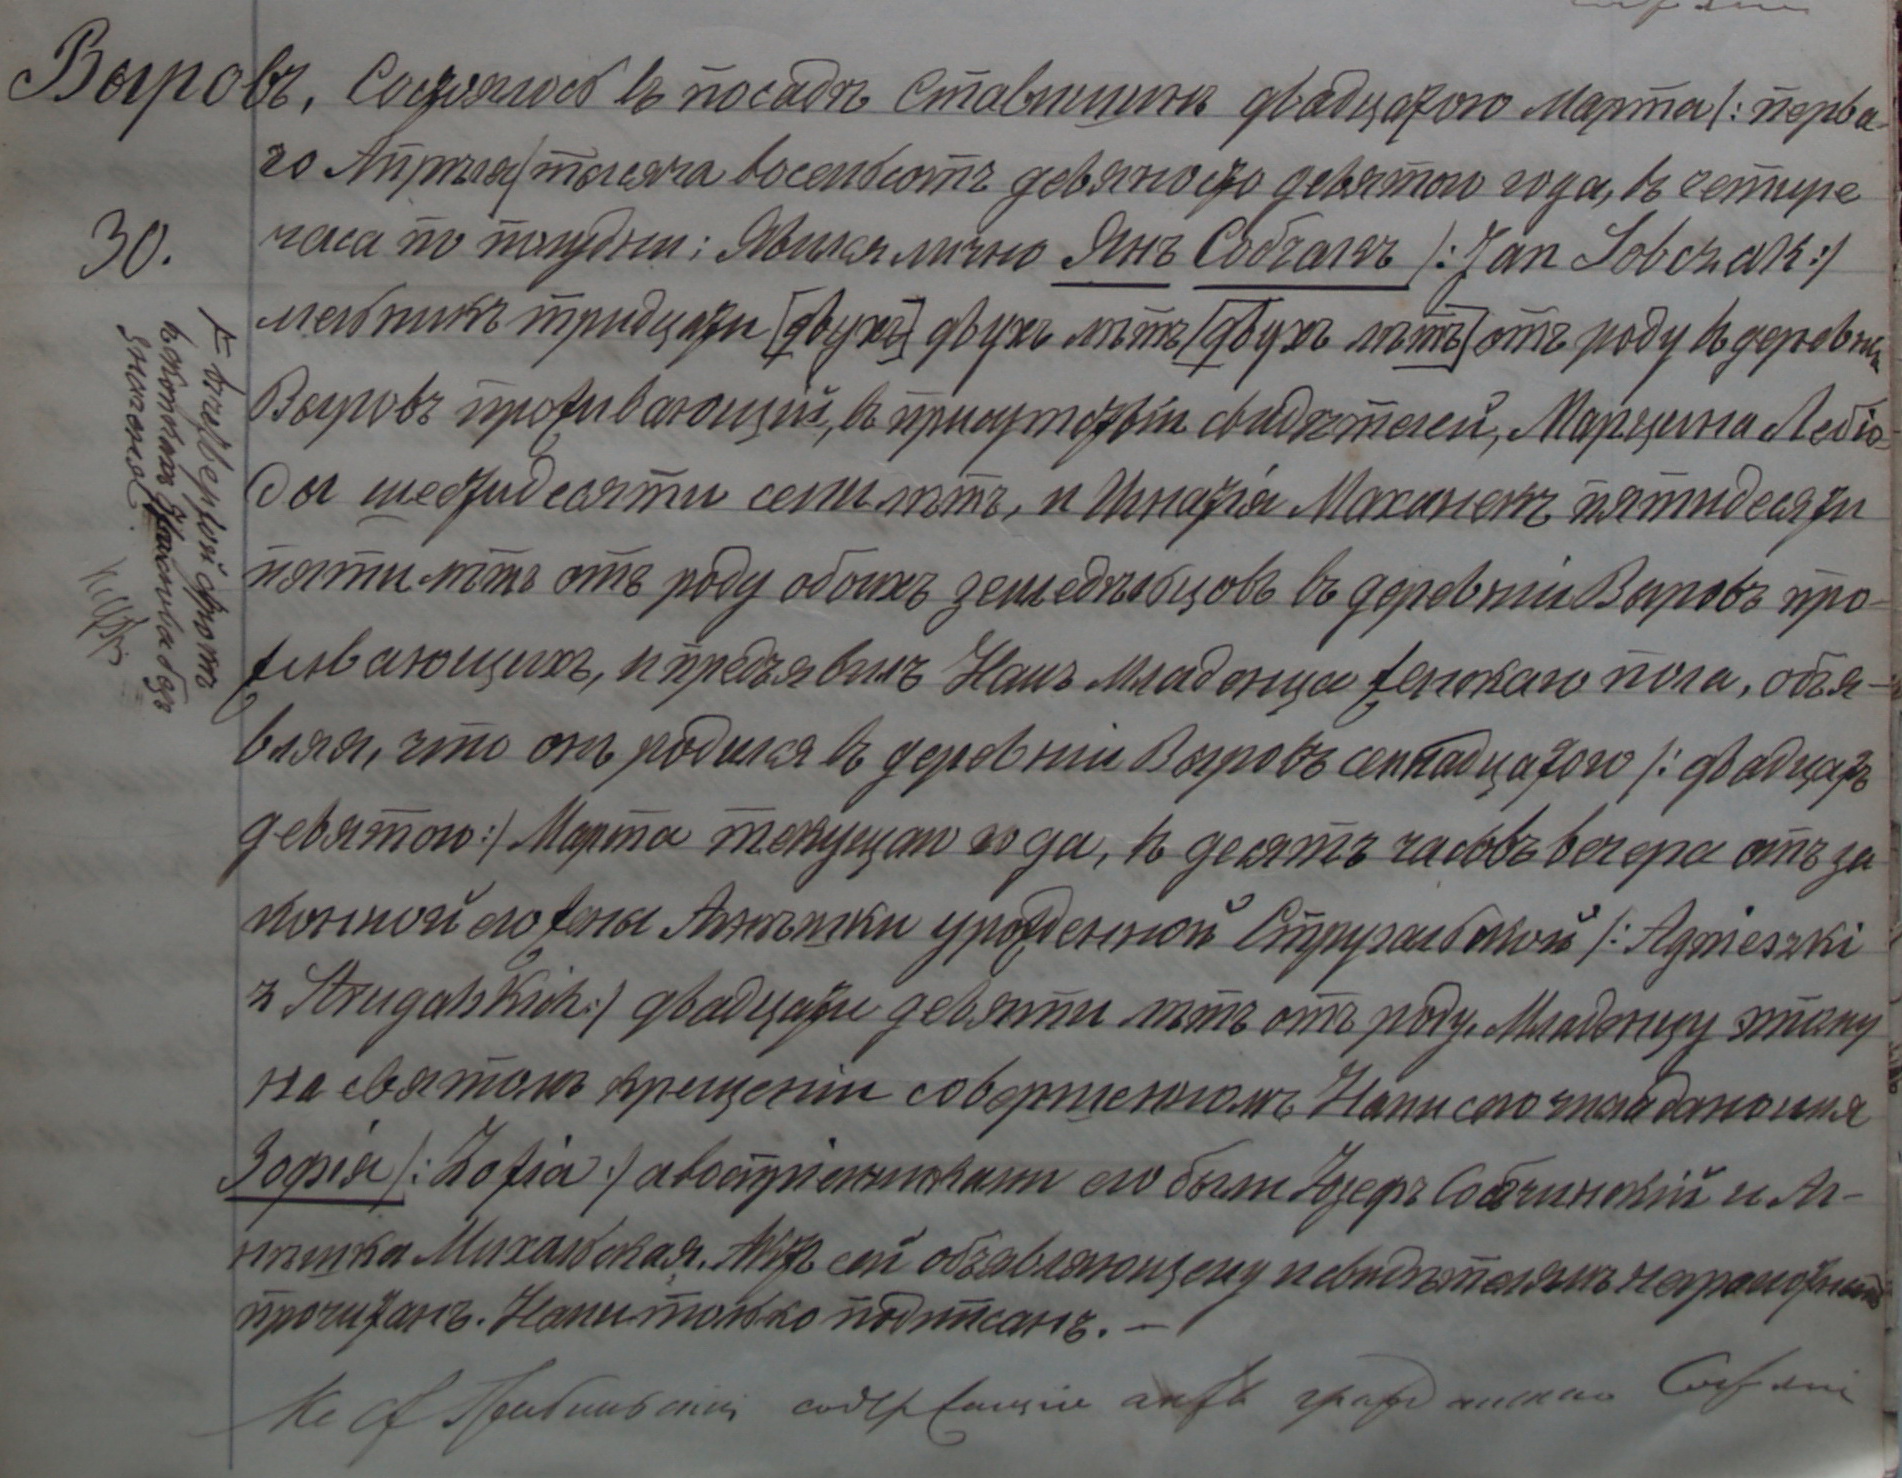 Выровъ, Состоялось въ посадѣ Ставишинѣ двадцатого Марта /: перва-
го Апрѣля/ тысяча восемьсотъ девяносто девятого года, въ четыре
30.
часа по полудни; Явился лично Янъ Собчакъ /: Jan Sobczak :/
мельникъ тридцати [двухъ] двухъ лѣтъ [двухъ лѣтъ] отъ роду въ деревни
Выровъ проживающій, въ присутствіи свидѣтелей, Марцина Лебіо-
ды шестидесяти семи лѣтъ, и Игнатія Маханекъ пятидесяти
пяти лѣтъ отъ роду обоихъ земледѣльцовъ въ деревніи Выровъ про-
живающихъ, и предъявилъ Намъ младенца женскаго пола, объя-
вляя, что онъ родился въ деревніи Выровъ семнадцатого /: двадцать
девятого :/ Марта текущаго года, въ десять часовъ вечера отъ за
конной его жены Агнѣшки урожденной Стругальской /: Agnieszki
z Strugalskich :/ двадцати девяти лѣтъ отъ роду. Младенцу этому
на святомъ крещеніи совершенномъ Нами сего числа дано имя
Зофія /: Zofia :/ а воспріемниками его были Юзефъ Собчинскій и Аг-
нѣшка Михальская. Актъ сей объявляющему и свидѣтелямъ неграмотнымъ
прочитанъ. Нами только подписанъ. —
въ четвертой строкѣ
въ скобкахъ слова
Кс содержащій акты гражданскаго